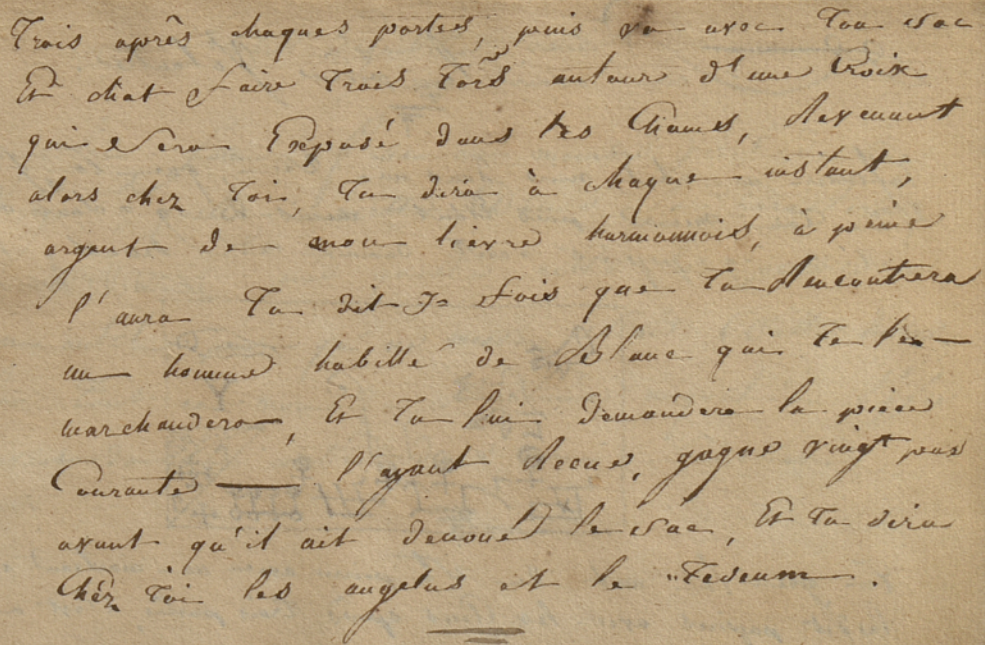 Trois après chaques portes, puis va avec Ton sac
Et chat faire Trois Torс autour d'une Croix
qui Sera Exposé dans les Chames, Revenant
alors chez Toi, Tu dira à chaque instant,
argent de mon lièvre harmonnois, à peine
l'aura Tu dit 7= fois que Tu Rencontrera
un homme habillé de Blanc qui te le
marchandera, Et Tu lui demandera la pièce
Courante — l'ayant Recue, gagne vingt pas
avant qu'il ait denoué le Sac, Et Tu dira
Chéz Toi les angelus et le "Tedeum.